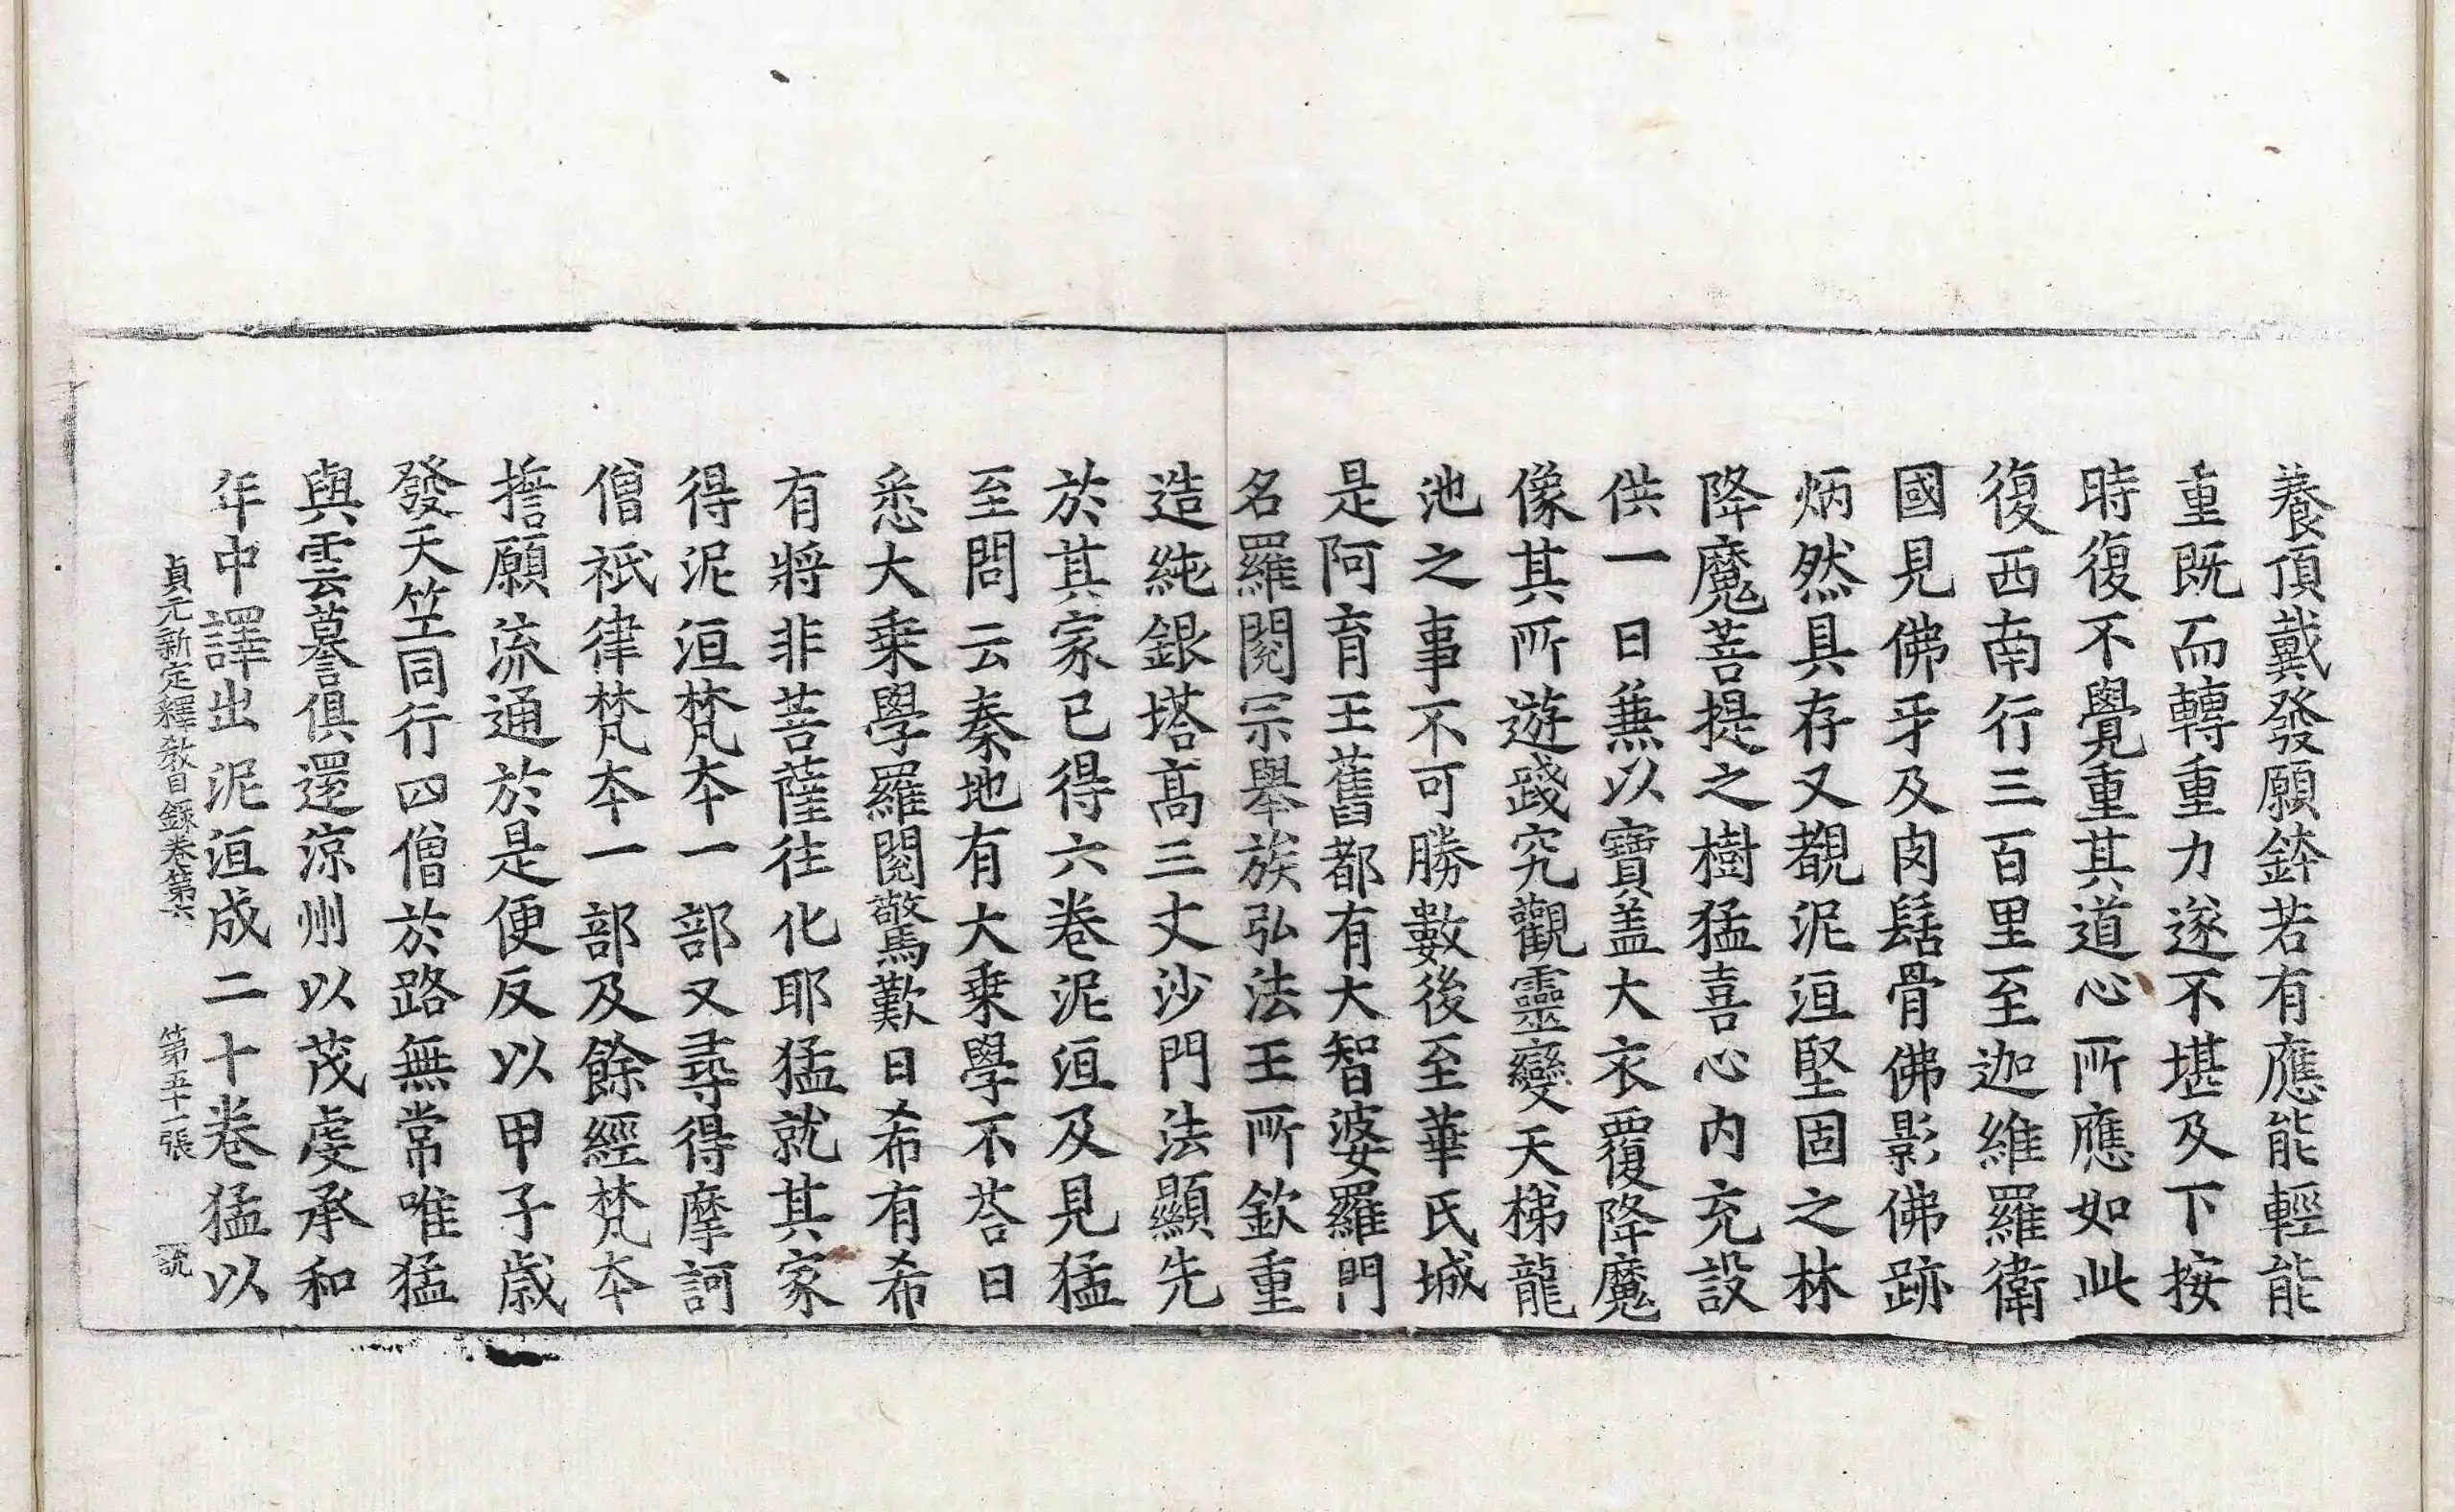 養頂戴發願鉢若有應能輕能
重既而轉重力遂不堪及下按
時復不覺重其道心所應如此
復西南行三百里至迦維羅衛
國見佛牙及肉髻骨佛影佛跡
炳然具存又覩泥洹堅固之林
降魔菩提之樹猛喜心內充設
供一日兼以寶盖大衣覆降魔
像其所遊踐究觀靈變天梯龍
池之事不可勝數後至華氏城
是阿育王舊都有大智婆羅門
名羅閱宗舉族弘法王所欽重
造純銀塔高三丈沙門法顯先
於其家已得六卷泥洹及見猛
至問云秦地有大乗學不荅曰
悉大乗學羅閱驚歎曰希有希
有將非菩薩往化耶猛就其家
得泥洹梵夲一部又尋得摩訶
僧祇律梵夲一部及餘經梵夲
擔願流通於是便反以甲子歳
發天竺同行四僧於路無常唯猛
與雲摹俱還涼州以茂虔承和
年中譯出泥洹成二十卷猛以
貞元新定釋教目錄卷第六 第五十一張 說